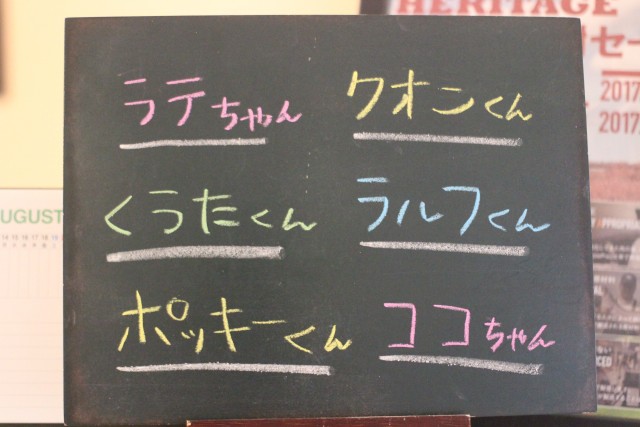 ラテちゃん
クオンくん
くうたくん
ラルフくん
ポッキーくん
ココちゃん
HERITAGE
セー
2017
2017
AUGUST